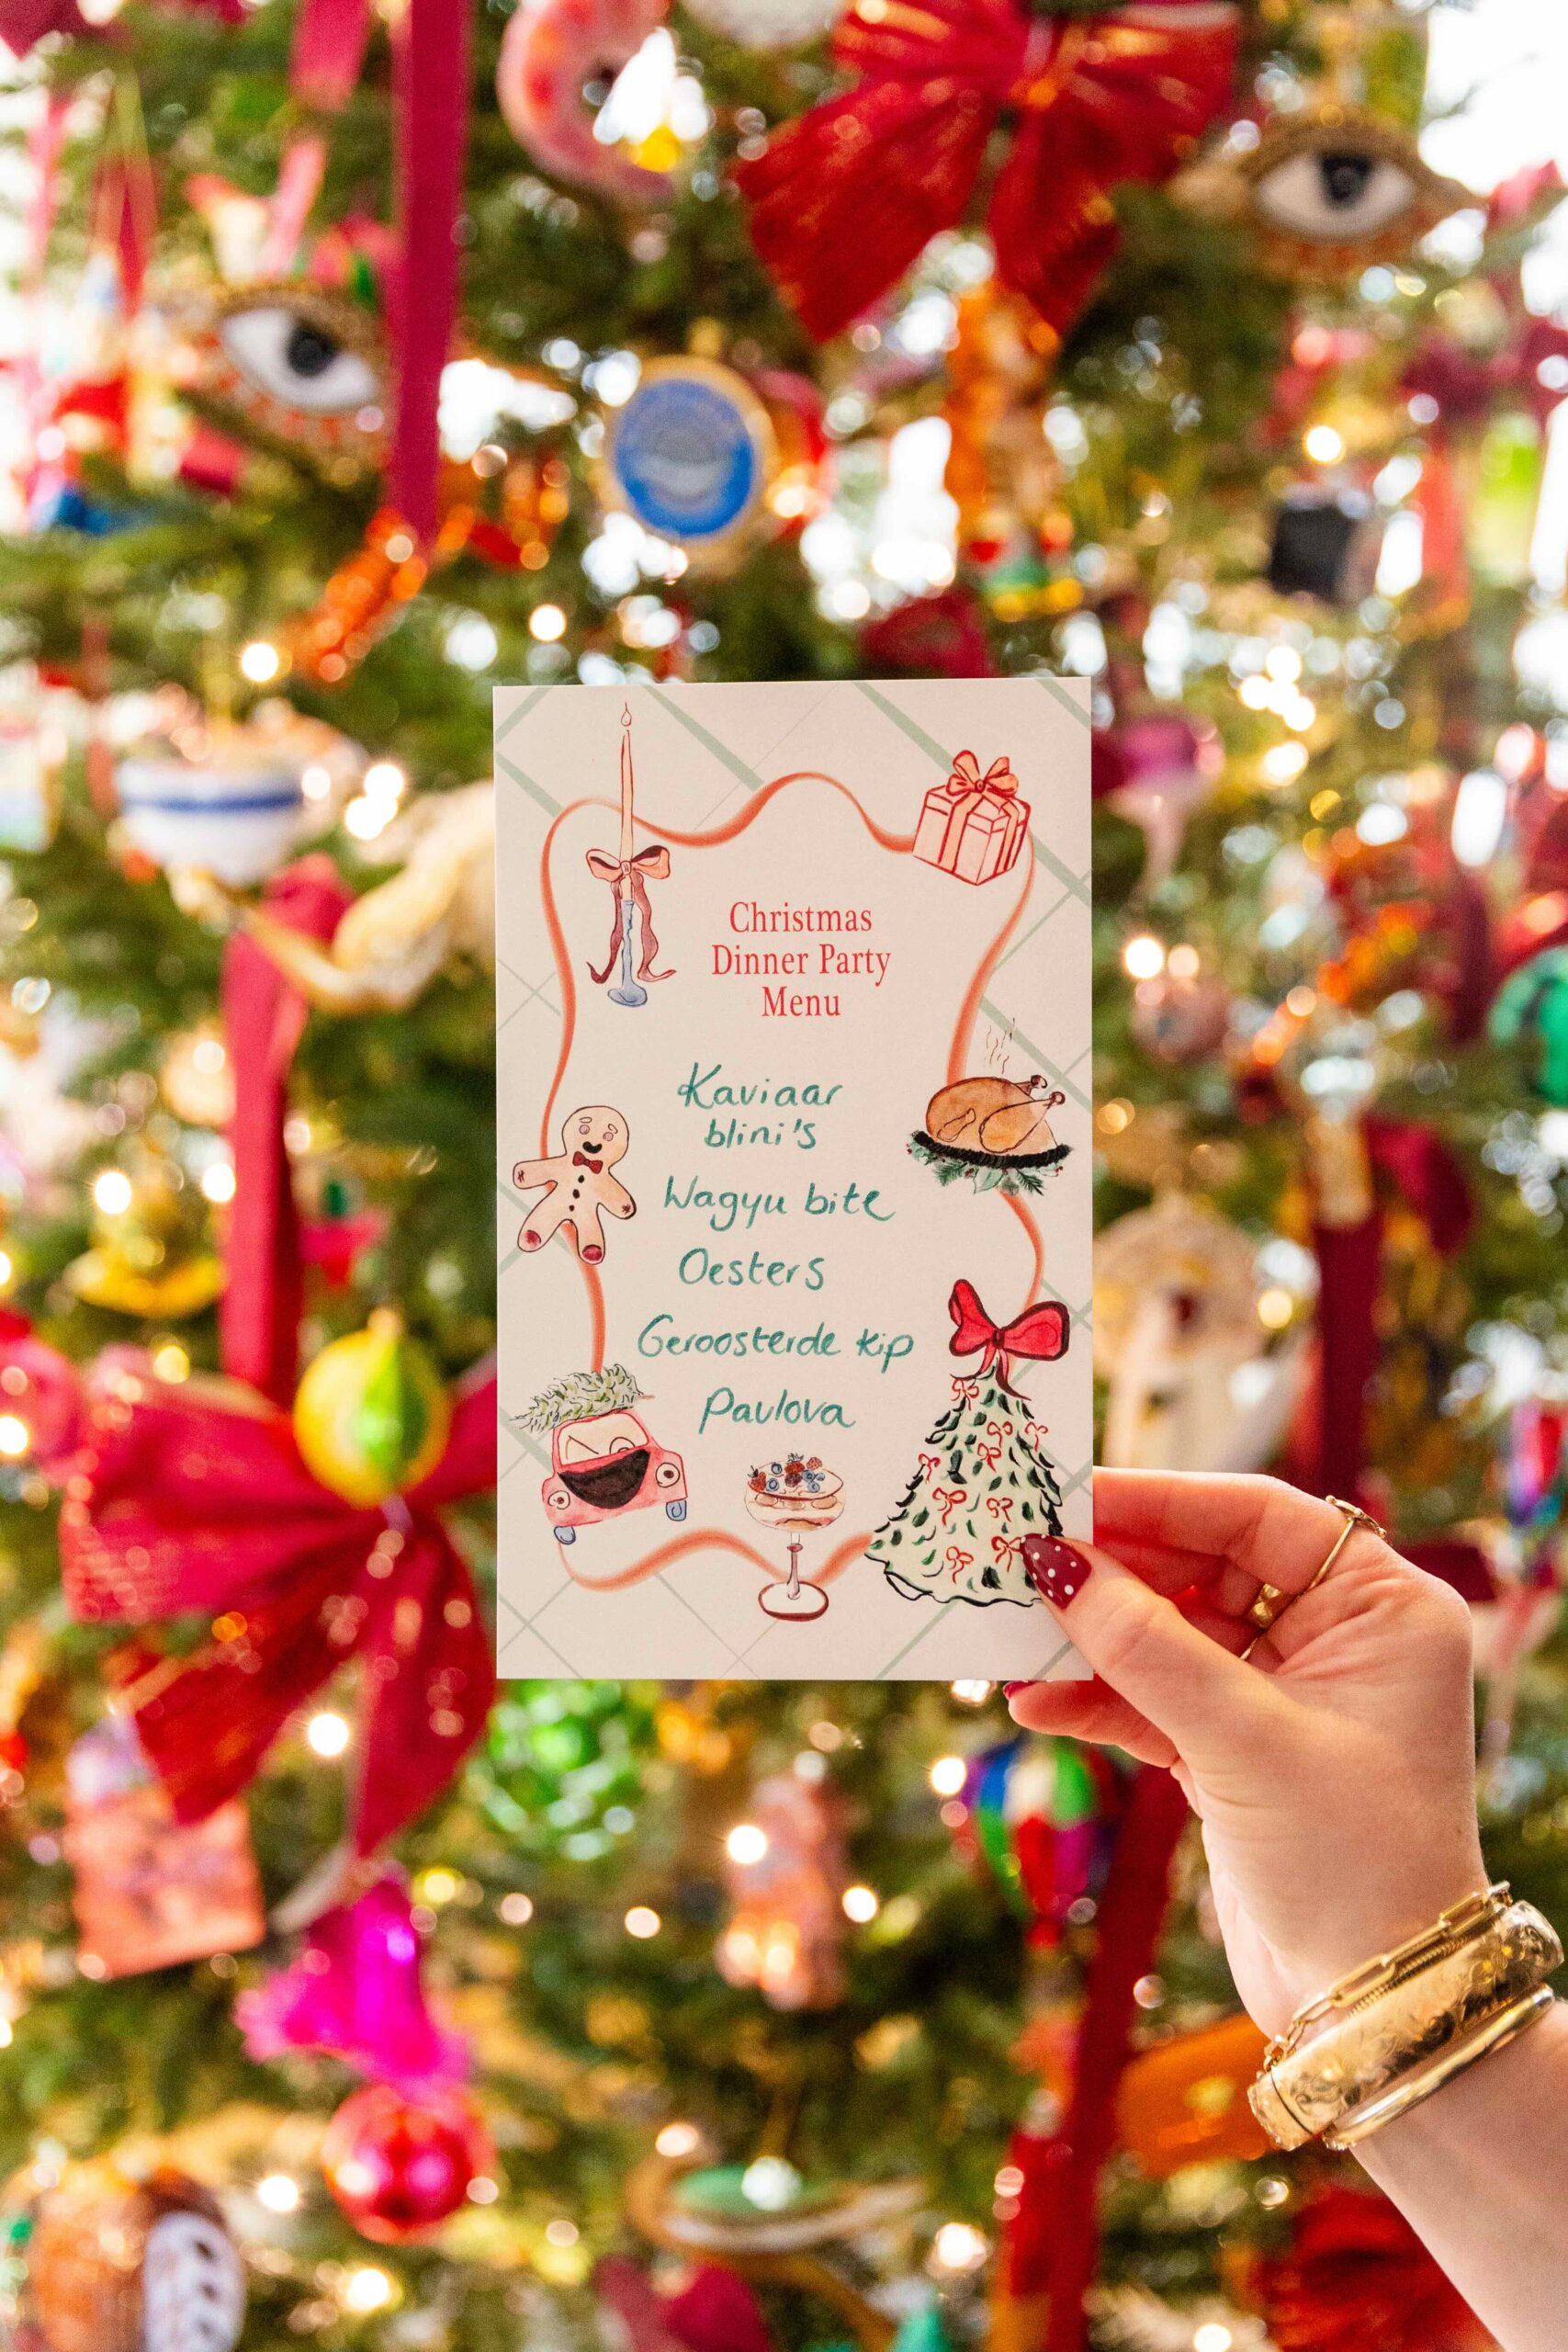 Christmas
Dinner Party
Menu
Kaviaar
blini's
Wagyu bite
Oesters
Geroosterde kip
Pavlova